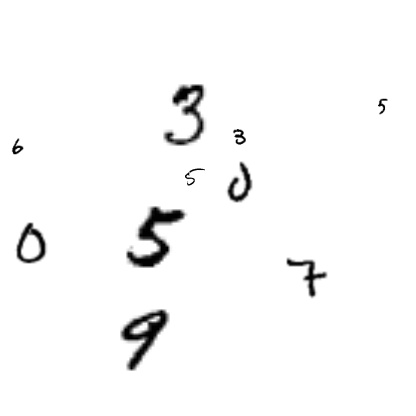 3
5
3
6
5
0
0
5
7
9